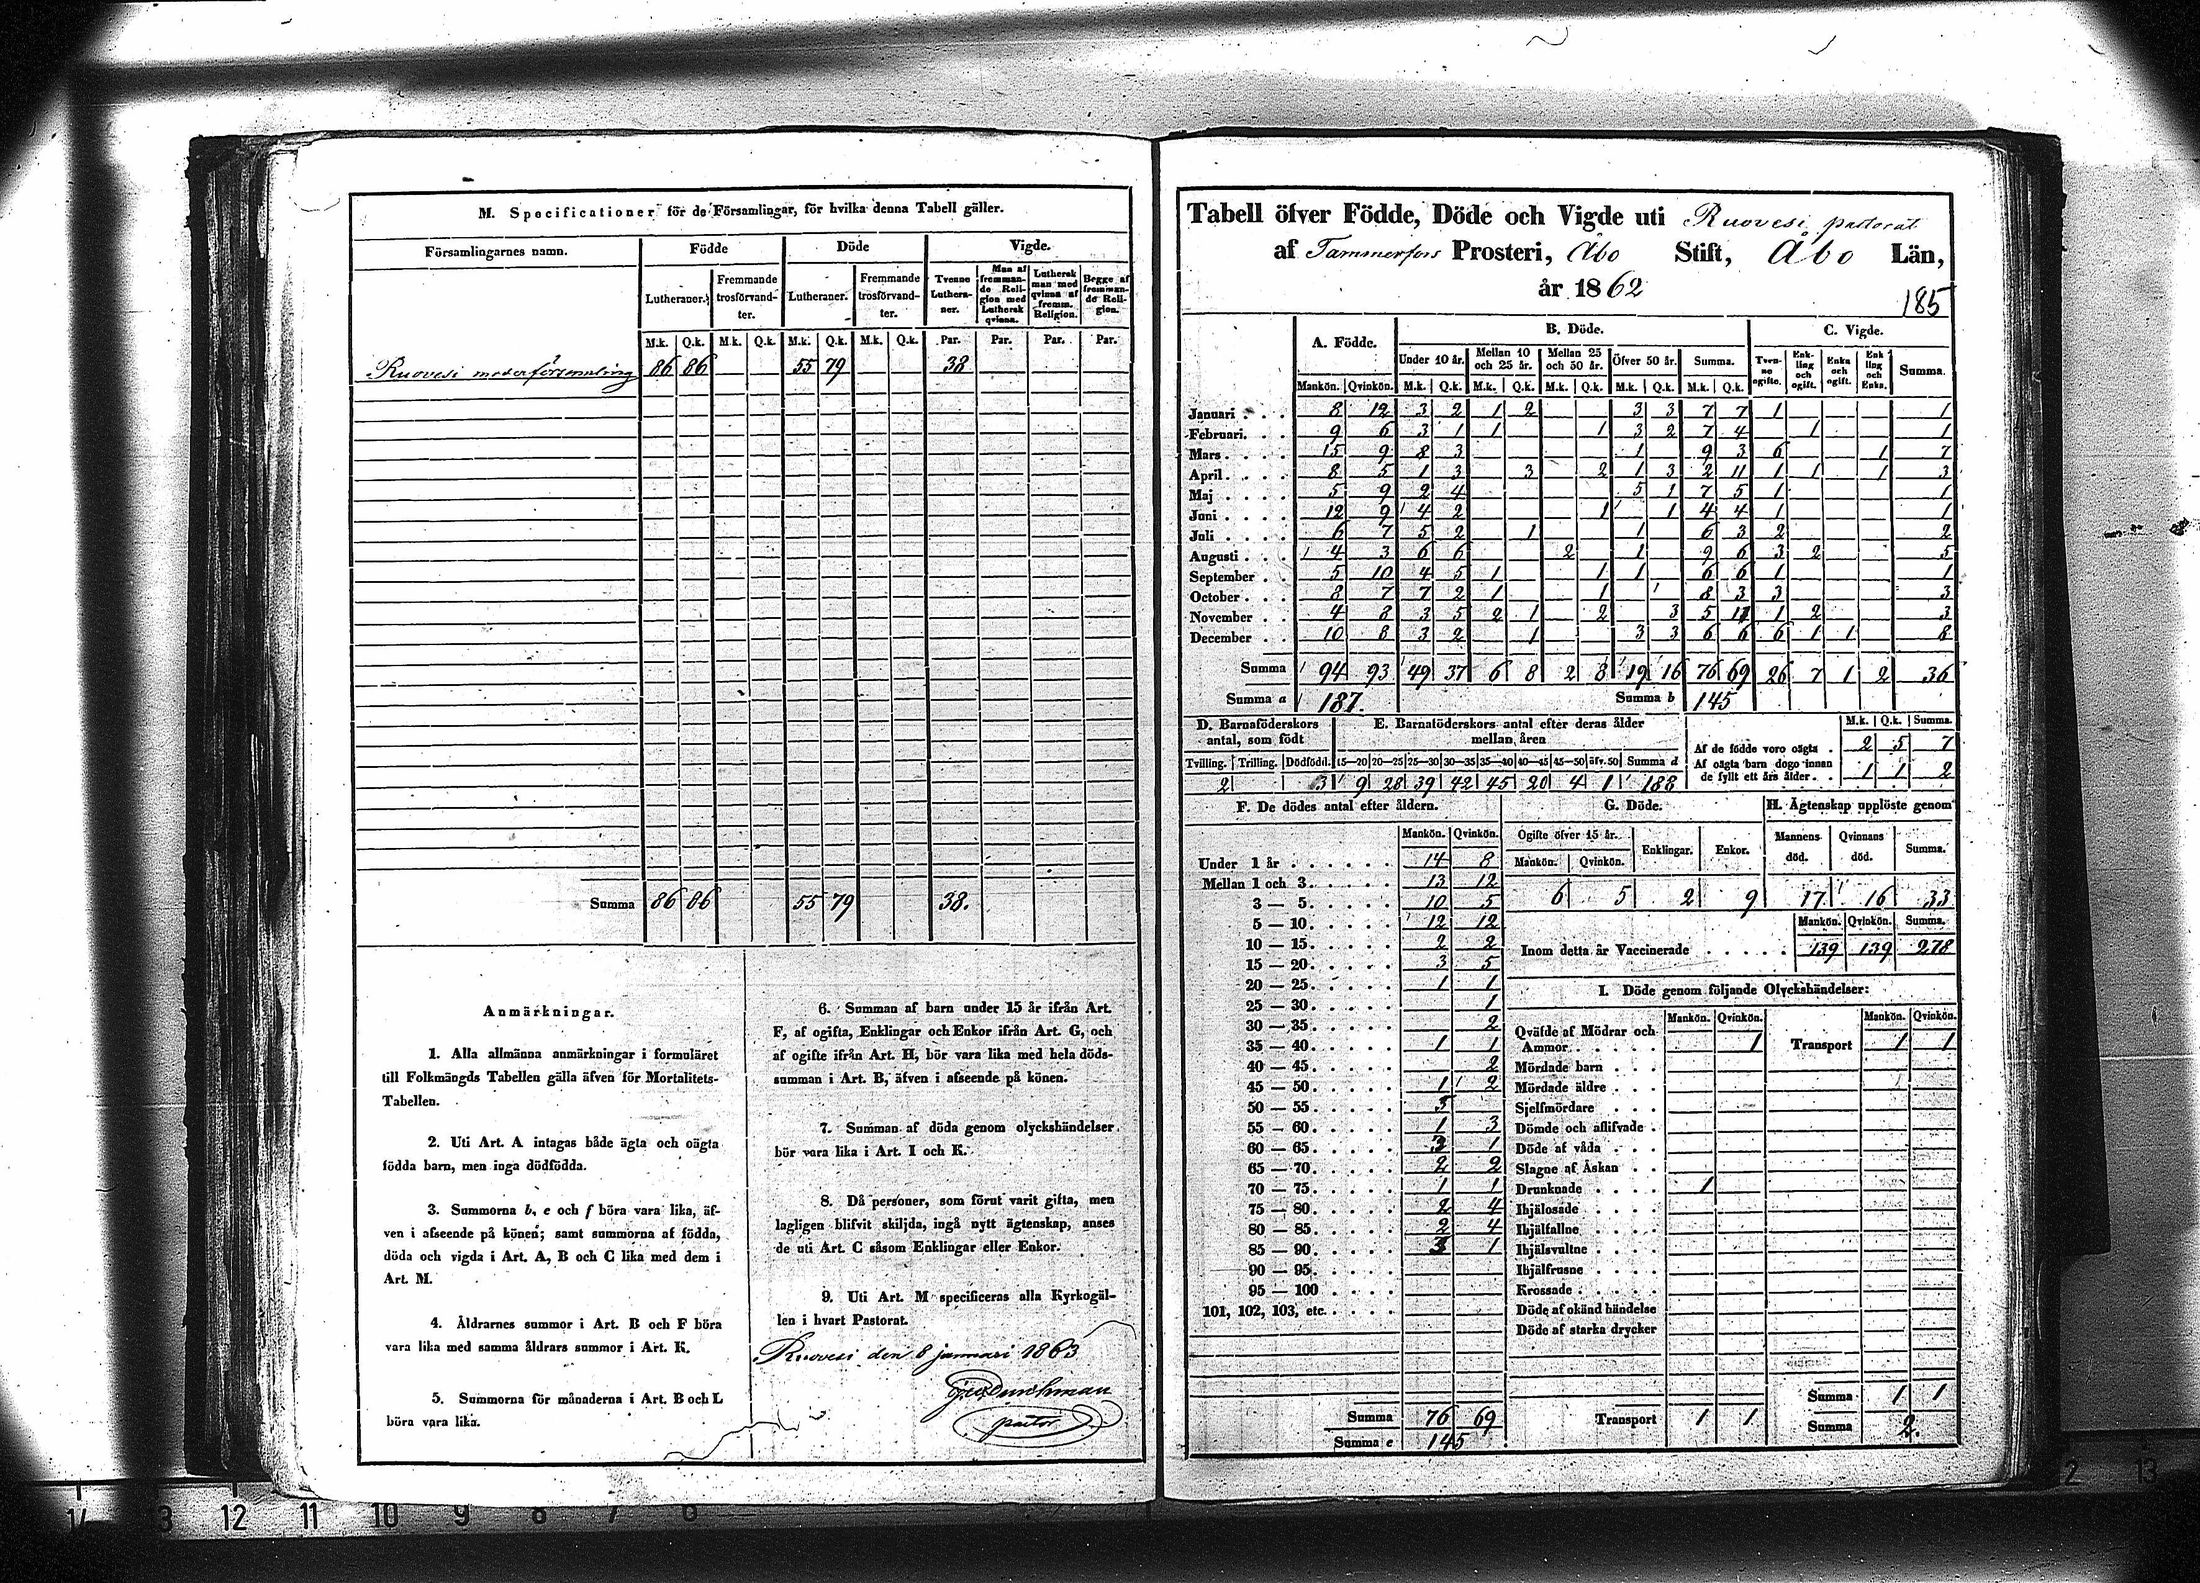 M. Specificationer för de Församlingar, för hvilka denna Tabell gäller.
Församlingarnes namn. Födde Döde Vigde.
Lutheraner. Fremmande trosförvandter. Lutheraner. Fremmande trosförvandter. Tvenne Lutheraner. Man af fremmande Religion med Luthersk qvinna. Luthersk man med qvinna af fremm. Religion. Begge af fremmande Religion.
M.k. Q.k. M.k. Q.k. M.k. Q.k. M.k. Q.k. Par. Par. Par. Par.
Ruovesi moderförsamling 86 86 55 79 38
Summa 86 86 55 79 38.
Anmärkningar.
1. Alla allmänna anmärkningar i formuläret
till Folkmängds Tabellen gälla äfven för Mortalitets-
Tabellen.
2. Uti Art. A intagas både ägta och oägta
födda barn, men inga dödfödda.
3. Summorna b, e och f böra vara lika, äf-
ven i afseende på könen; samt summorna af födda,
döda och vigda i Art. A, B och C lika med dem i
Art. M.
4. Åldrarnes summor i Art. B och F böra
vara lika med samma åldrars summor i Art. K.
5. Summorna för månaderna i Art. B och L
böra vara lika.
6. Summan af barn under 15 år ifrån Art.
F, af ogifta, Enklingar och Enkor ifrån Art. G, och
af ogifte ifrån Art. H, bör vara lika med hela döds-
summan i Art. B, äfven i afseende på könen.
7. Summan af döda genom olyckshändelser
bör vara lika i Art. I och K.
8. Då personer, som förut varit gifta, men
lagligen blifvit skiljda, ingå nytt ägtenskap, anses
de uti Art. C såsom Enklingar eller Enkor.
9. Uti Art. M specificeras alla Kyrkogäl-
len i hvart Pastorat.
Ruovesi den 8 januari 1863
pastor
Tabell öfver Födde, Döde och Vigde uti Ruovesi pastorat
af Tammerfors Prosteri, Åbo Stift, Åbo Län,
år 1862
185
A. Födde. B. Döde. C. Vigde.
Under 10 år. Mellan 10 och 25 år. Mellan 25 och 50 år. Öfver 50 år. Summa. Tvenne ogifte. Enkling och ogift. Enka och ogift. Enkling och Enka. Summa.
Mankön. Qvinkön. M.k. Q.k. M.k. Q.k. M.k. Q.k. M.k. Q.k. M.k. Q.k.
Januari 8 12 3 2 1 2 3 3 7 7 1 1
Februari. 9 6 3 1 1 1 3 2 7 4 1 1
Mars 15 9 8 3 1 9 3 6 1 7
April. 8 5 1 3 3 2 1 3 2 11 1 1 1 3
Maj 5 9 2 4 5 1 7 5 1 1
Juni 12 9 4 2 1 1 4 4 1 1
Juli 6 7 5 2 1 1 6 3 2 2
Augusti 4 3 6 6 2 1 9 6 3 2 5
September 5 10 4 5 1 1 1 6 6 1 1
October 8 7 7 2 1 1 8 3 3 3
November 4 8 3 5 2 1 2 3 5 11 1 2 3
December 10 8 3 2 1 3 3 6 6 6 1 1 8
Summa 94 93 49 37 6 8 2 8 19 16 76 69 26 7 1 2 36
Summa a 187. Summa b 145
D. Barnaföderskors antal, som födt
Tvilling. Trilling. Dödfödd.
2 3
E. Barnaföderskors antal efter deras ålder mellan åren
15—20 20—25 25—30 30—35 35—40 40—45 45—50 äfv. 50 Summa d
9 28 39 42 45 20 4 1 188
M.k. Q.k. Summa.
Af de födde voro oägta 2 5 7
Af oägta barn dogo innan
de fyllt ett års ålder 1 1 2
F. De dödes antal efter åldern.
Mankön. Qvinkön.
Under 1 år 14 8
Mellan 1 och 3. 13 12
3 — 5. 10 5
5 — 10. 12 12
10 — 15. 2 2
15 — 20. 3 5
20 — 25. 1 1
25 — 30. 1
30 — 35. 2
35 — 40. 1 1
40 — 45. 2
45 — 50. 1 2
50 — 55. 5
55 — 60. 1 3
60 — 65. 1
65 — 70. 2 2
70 — 75. 1 1
75 — 80. 2 4
80 — 85. 2 4
85 — 90. 3 1
90 — 95.
95 — 100
101, 102, 103, etc.
Summa 76 69
Summa e 145
G. Döde.
Ogifte öfver 15 år. Enklingar. Enkor.
Mankön. Qvinkön.
6 5 2 9
H. Ägtenskap upplöste genom
Mannens död. Qvinnans död. Summa.
17 16 33
Mankön. Qvinkön. Summa.
Inom detta år Vaccinerade 139 139 278
I. Döde genom följande Olyckshändelser:
Mankön. Qvinkön. Mankön. Qvinkön.
Qväfde af Mödrar och
Ammor 1 Transport 1 1
Mördade barn
Mördade äldre
Sjelfmördare
Dömde och aflifvade
Döde af våda
Slagne af Åskan
Drunknade 1
Ihjälosade
Ihjälfallne
Ihjälsvultne
Ihjälfrusne
Krossade
Döde af okänd händelse
Döde af starka drycker
Summa 1 1
Transport 1 1 Summa 2.
14 13 12 11 10 9 8 7 6
2 13